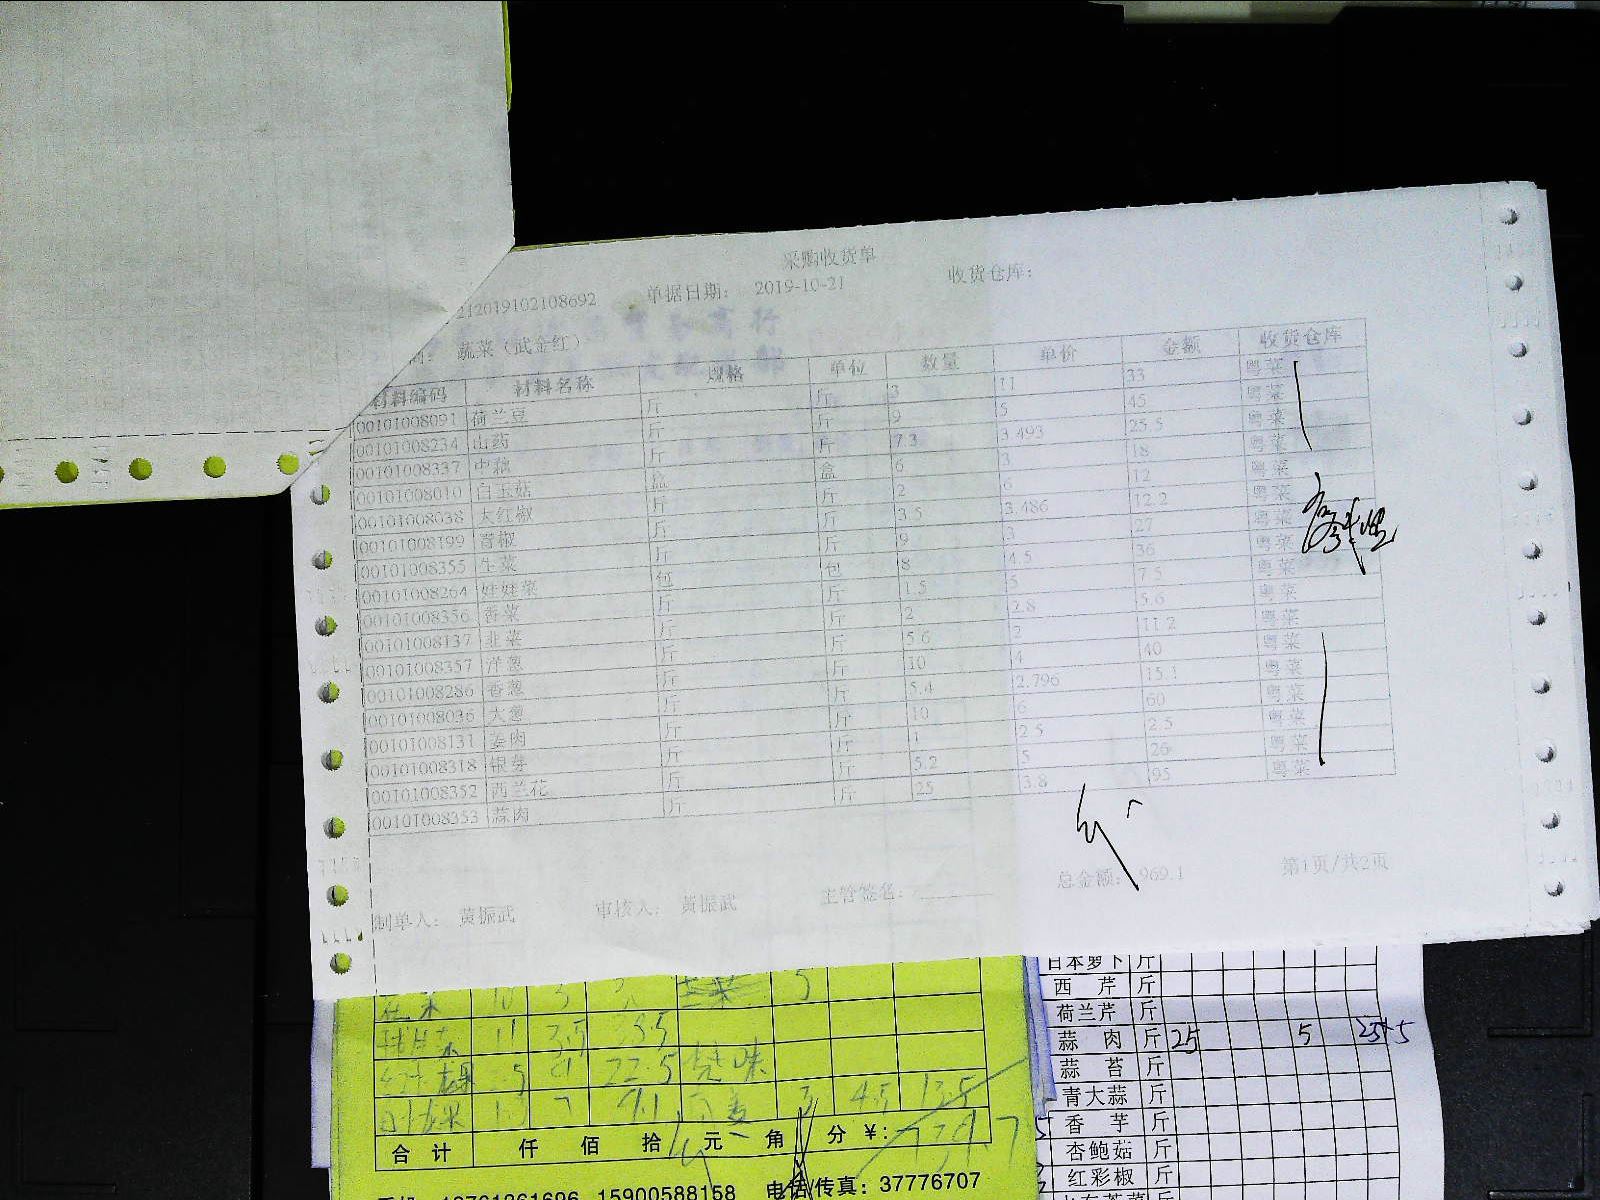 采购收货单
212019102108692 单据日期： 2019-10-21 收货仓库：
蔬菜（武金红）
材料编码 材料名称 规格 单位 数量 单价 金额 收货仓库
00101008091 荷兰豆 斤 斤 3 11 33 粤菜
00101008234 山药 斤 斤 9 5 45 粤菜
00101008337 中藕 斤 斤 7.3 3.493 25.5 粤菜
00101008010 白玉菇 盒 盒 6 3 18 粤菜
00101008038 大红椒 斤 斤 2 6 12 粤菜
00101008199 青椒 斤 斤 3.5 3.486 12.2 粤菜
00101008355 生菜 斤 斤 9 3 27 粤菜
00101008264 娃娃菜 包 包 8 4.5 36 粤菜
00101008356 香菜 斤 斤 1.5 5 7.5 粤菜
00101008137 韭菜 斤 斤 2 2.8 5.6 粤菜
00101008357 洋葱 斤 斤 5.6 2 11.2 粤菜
00101008286 香葱 斤 斤 10 4 40 粤菜
00101008036 大葱 斤 斤 5.4 2.796 15.1 粤菜
00101008131 姜肉 斤 斤 10 6 60 粤菜
00101008318 银芽 斤 斤 1 2.5 2.5 粤菜
00101008352 西兰花 斤 斤 5.2 5 26 粤菜
00101008353 蒜肉 斤 斤 25 3.8 95 粤菜
总金额： 969.1 第1页/共2页
制单人： 黄振武 审核人： 黄振武 主管签名：
11 3.5 38.5
22.5 烧味
1.3 7 9.1 3 4.5 13.5
合计 仟 佰 拾 元 角 分 ¥：
15900588158 电话/传真：37776707
日本萝卜 斤
西芹 斤
荷兰芹 斤
蒜肉 斤 25 5
蒜苔 斤
青大蒜 斤
香芋 斤
杏鲍菇 斤
红彩椒 斤